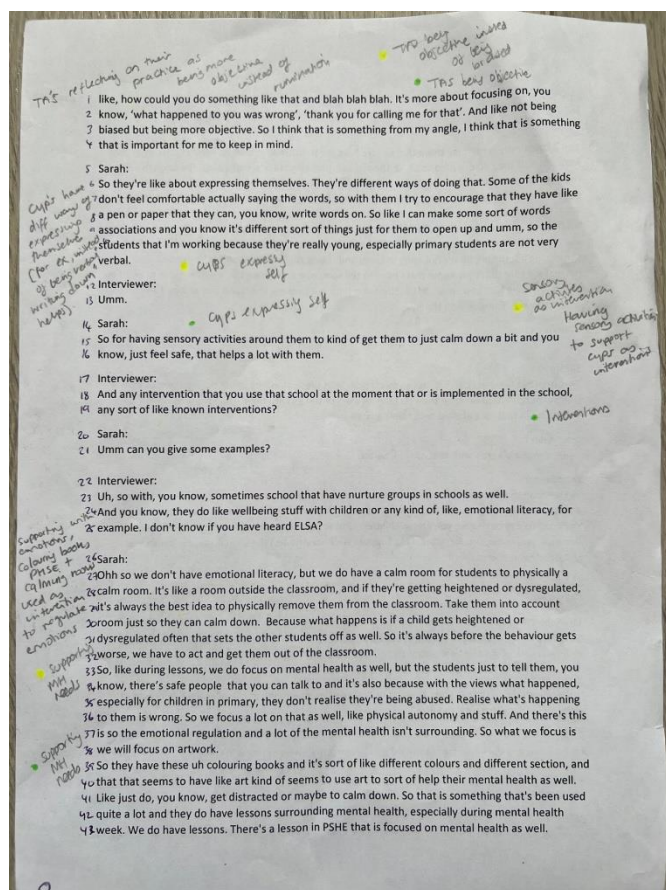 TA's reflecting on their
practice as
being more
objective
instead of
rumination
TAS being
objective instead
of being
biased
TAS being objective
1 like, how could you do something like that and blah blah blah. It's more about focusing on, you
2 know, 'what happened to you was wrong', 'thank you for calling me for that'. And like not being
3 biased but being more objective. So I think that is something from my angle, I think that is something
4 that is important for me to keep in mind.
5 Sarah:
6 So they're like about expressing themselves. They're different ways of doing that. Some of the kids
7 don't feel comfortable actually saying the words, so with them I try to encourage that they have like
8 a pen or paper that they can, you know, write words on. So like I can make some sort of words
9 associations and you know it's different sort of things just for them to open up and umm, so the
students that I'm working because they're really young, especially primary students are not very
verbal.
CYP's have
diff ways of
expressing
themselves
(for ex, instead
of being verbal
writing down
helps)
CYPS expressing
self
12 Interviewer:
13 Umm.
CYPS expressing self
14 Sarah:
15 So for having sensory activities around them to kind of get them to just calm down a bit and you
16 know, just feel safe, that helps a lot with them.
Sensory
activities
as intervention
Having
sensory activities
to support
CYPS as
intervention
17 Interviewer:
18 And any intervention that you use that school at the moment that or is implemented in the school,
19 any sort of like known interventions?
Interventions
20 Sarah:
21 Umm can you give some examples?
22 Interviewer:
23 Uh, so with, you know, sometimes school that have nurture groups in schools as well.
24 And you know, they do like wellbeing stuff with children or any kind of, like, emotional literacy, for
25 example. I don't know if you have heard ELSA?
Supporting with
emotions,
colouring books
PHSE +
calming room
used as
intervention
to regulate
emotions
26 Sarah:
27 Ohh so we don't have emotional literacy, but we do have a calm room for students to physically a
28 calm room. It's like a room outside the classroom, and if they're getting heightened or dysregulated,
29 it's always the best idea to physically remove them from the classroom. Take them into account
30 room just so they can calm down. Because what happens is if a child gets heightened or
31 dysregulated often that sets the other students off as well. So it's always before the behaviour gets
32 worse, we have to act and get them out of the classroom.
Supporting
MH
needs
33 So, like during lessons, we do focus on mental health as well, but the students just to tell them, you
34 know, there's safe people that you can talk to and it's also because with the views what happened,
35 especially for children in primary, they don't realise they're being abused. Realise what's happening
36 to them is wrong. So we focus a lot on that as well, like physical autonomy and stuff. And there's this
37 is so the emotional regulation and a lot of the mental health isn't surrounding. So what we focus is
38 we will focus on artwork.
Supporting
MH
needs
39 So they have these uh colouring books and it's sort of like different colours and different section, and
40 that that seems to have like art kind of seems to use art to sort of help their mental health as well.
41 Like just do, you know, get distracted or maybe to calm down. So that is something that's been used
42 quite a lot and they do have lessons surrounding mental health, especially during mental health
43 week. We do have lessons. There's a lesson in PSHE that is focused on mental health as well.